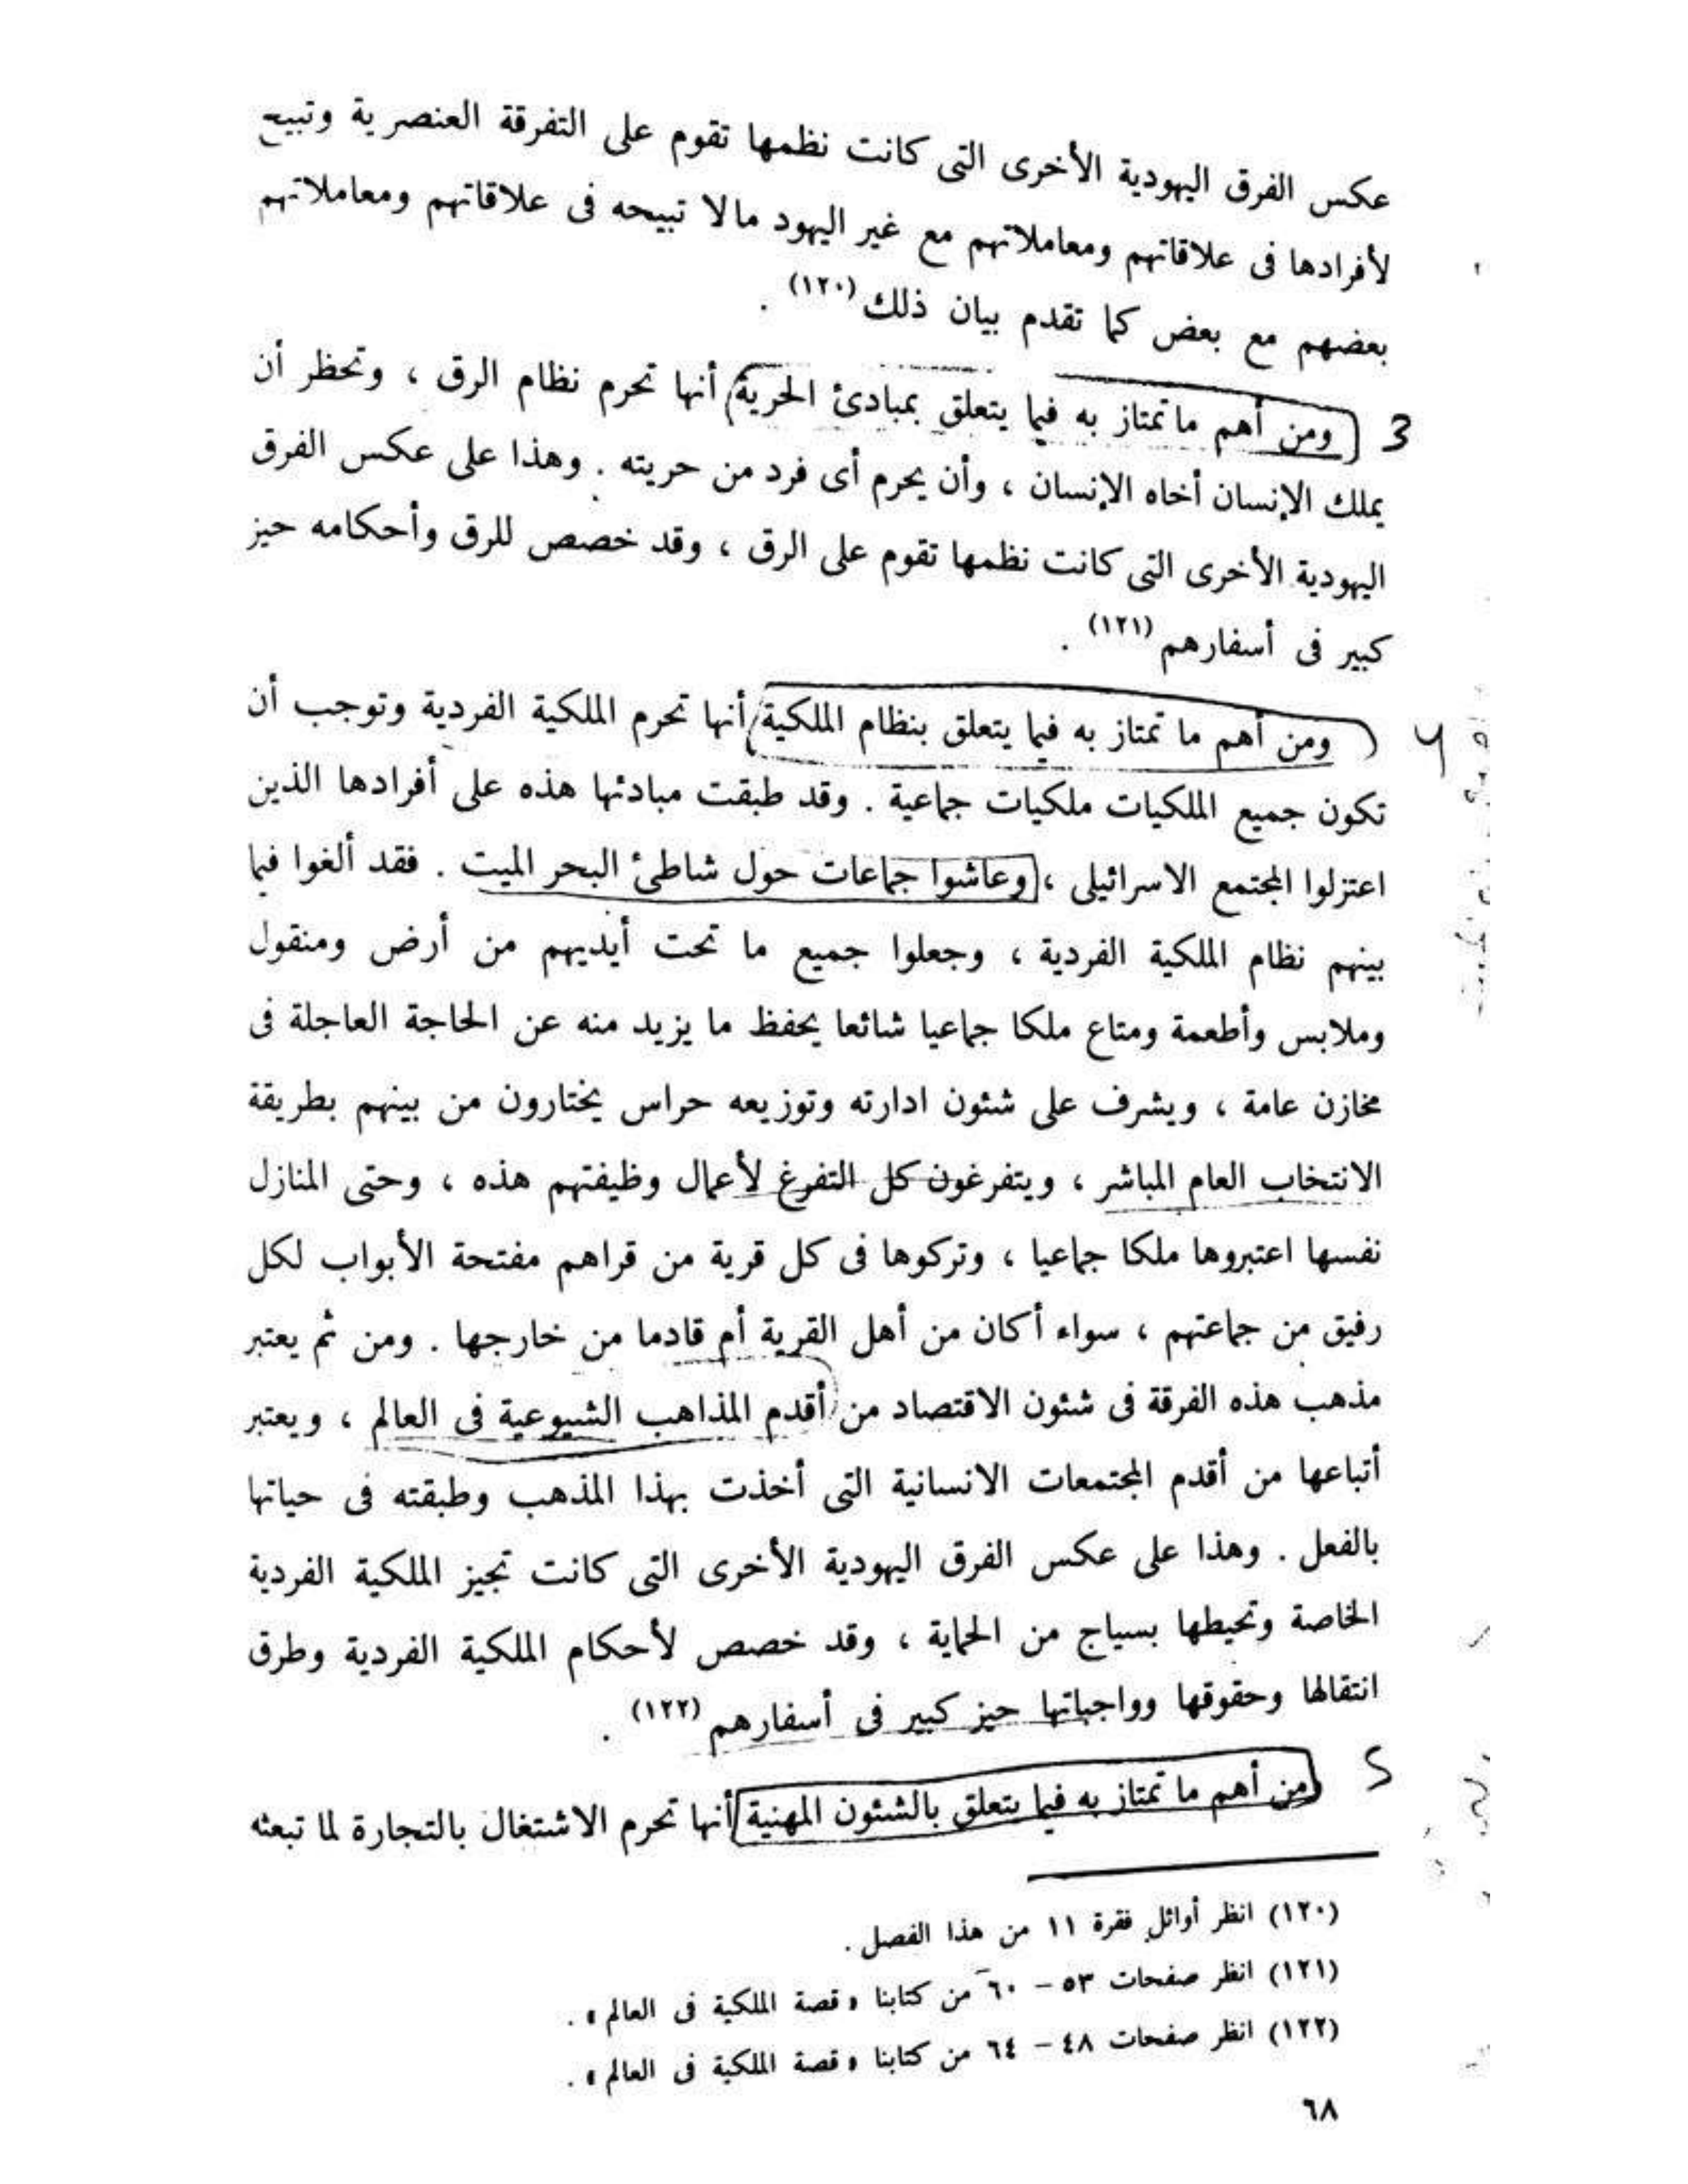 عكس الفرق اليهودية الأخرى التى كانت نظمها تقوم على التفرقة العنصرية وتبيح
لأفرادها فى علاقاتهم ومعاملاتهم مع غير اليهود مالا تبيحه فى علاقاتهم ومعاملاتهم
بعضهم مع بعض كما تقدم بيان ذلك (١٢٠) .
3 ومن أهم ماتمتاز به فيما يتعلق بمبادئ الحرية أنها تحرم نظام الرق ، وتحظر أن
يملك الإنسان أخاه الإنسان ، وأن يحرم أى فرد من حريته . وهذا على عكس الفرق
اليهودية الأخرى التى كانت نظمها تقوم على الرق ، وقد خصص للرق وأحكامه حيز
كبير فى أسفارهم (١٢١) .
4 ومن أهم ما تمتاز به فيما يتعلق بنظام الملكية أنها تحرم الملكية الفردية وتوجب أن
تكون جميع الملكيات ملكيات جماعية . وقد طبقت مبادئها هذه على أفرادها الذين
اعتزلوا المجتمع الاسرائيلى ، وعاشوا جماعات حول شاطئ البحر الميت . فقد ألغوا فيما
بينهم نظام الملكية الفردية ، وجعلوا جميع ما تحت أيديهم من أرض ومنقول
وملابس وأطعمة ومتاع ملكا جماعيا شائعا يحفظ ما يزيد منه عن الحاجة العاجلة فى
مخازن عامة ، ويشرف على شئون ادارته وتوزيعه حراس يختارون من بينهم بطريقة
الانتخاب العام المباشر ، ويتفرغون كل التفرغ لأعمال وظيفتهم هذه ، وحتى المنازل
نفسها اعتبروها ملكا جماعيا ، وتركوها فى كل قرية من قراهم مفتحة الأبواب لكل
رفيق من جماعتهم ، سواء أكان من أهل القرية أم قادما من خارجها . ومن ثم يعتبر
مذهب هذه الفرقة فى شئون الاقتصاد من أقدم المذاهب الشيوعية فى العالم ، ويعتبر
أتباعها من أقدم المجتمعات الانسانية التى أخذت بهذا المذهب وطبقته فى حياتها
بالفعل . وهذا على عكس الفرق اليهودية الأخرى التى كانت تجيز الملكية الفردية
الخاصة وتحيطها بسياج من الحماية ، وقد خصص لأحكام الملكية الفردية وطرق
انتقالها وحقوقها وواجباتها حيز كبير فى أسفارهم (١٢٢) .
5 من أهم ما تمتاز به فيما يتعلق بالشئون المهنية أنها تحرم الاشتغال بالتجارة لما تبعثه
(١٢٠) انظر أوائل فقرة ١١ من هذا الفصل .
(١٢١) انظر صفحات ٥٣ - ٦٠ من كتابنا « قصة الملكية فى العالم » .
(١٢٢) انظر صفحات ٤٨ - ٦٤ من كتابنا « قصة الملكية فى العالم » .
٦٨